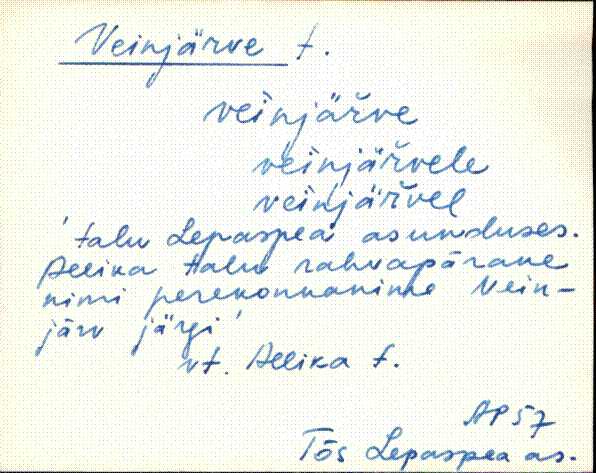 Veinjärve t.
veìnjäřve
veìnjäřvele
veìnjäřvel
'talu Lepaspea asunduses.
Allika talu rahvapärane
nimi perekonnanime Vein-
järv järgi'
vt. Allika t.
AP 57
Tõs Lepaspea as.